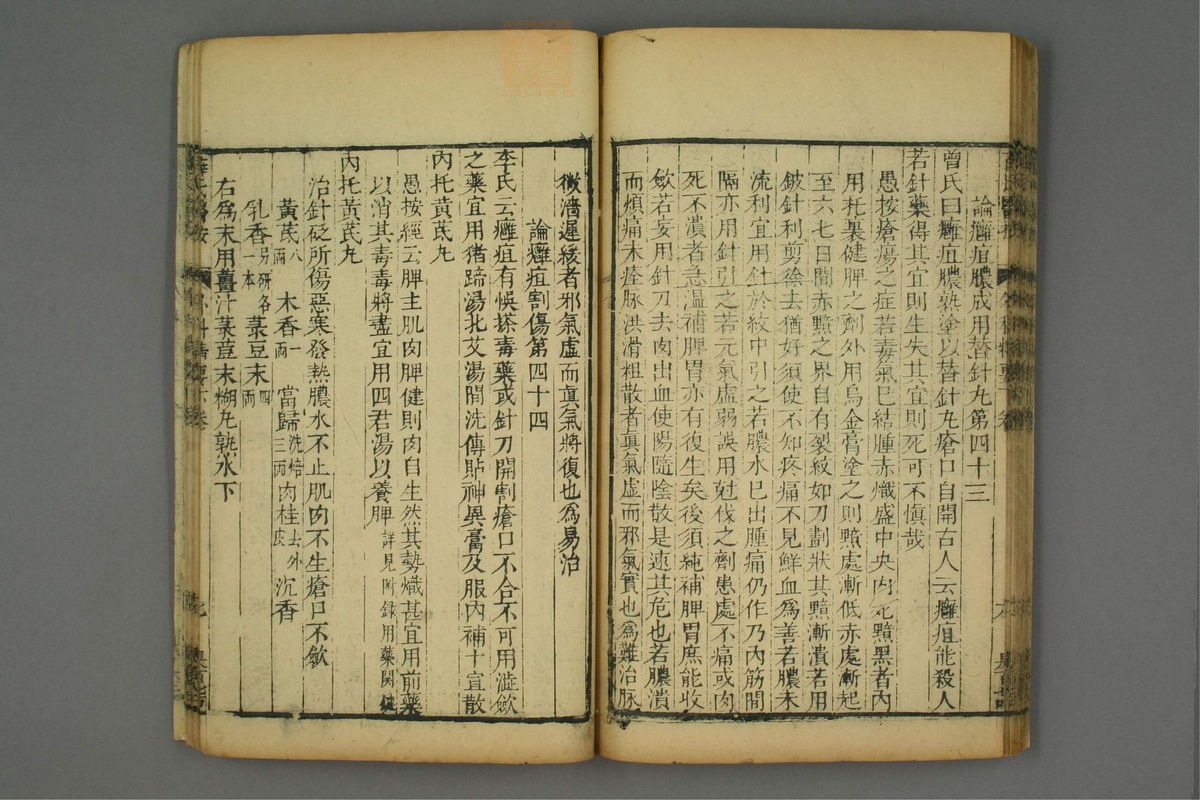 論癰疽膿成用替針丸第四十三
曾氏曰癰疽膿熟塗以替針丸瘡口自開古人云癰疽能殺人
若針藥得其宜則生失其宜則死可不慎哉
愚按瘡瘍之症若毒氣已結腫赤熾盛中央肉死黯黑者內
用托裏健脾之劑外用烏金膏塗之則黯處漸低赤處漸起
至六七日間赤黯之界自有裂紋如刀劃狀其黯漸潰若用
鈹針利剪徐去猶好須使不知疼痛不見鮮血為善若膿未
流利宜用針於紋中引之若膿水已出腫痛仍作乃內筋間
隔亦用針引之若元氣虛弱誤用尅伐之劑患處不痛或肉
死不潰者急温補脾胃亦有復生矣後須純補脾胃庶能收
歛若妄用針刀去肉出血使陽隨陰散是速其危也若膿潰
而煩痛未痊脉洪滑粗散者眞氣虛而邪氣實也為難治脉
微濇遲緩者邪氣虛而眞氣將復也為易治
論癰疽割傷第四十四
李氏云癰疽有悞搽毒藥或針刀開割瘡口不合不可用澁歛
之藥宜用猪蹄湯北艾湯間洗傅貼神異膏及服內補十宣散
內托黃芪丸
愚按經云脾主肌肉脾健則肉自生然其勢熾甚宜用前藥
以消其毒毒將盡宜用四君湯以養脾詳見附録用藥関鍵
內托黃芪丸
治針砭所傷惡寒發熱膿水不止肌肉不生瘡口不歛
黃芪八兩 木香一兩 當歸洗焙三兩 肉桂去外皮 沉香
乳香另研各一本 菉豆末四兩
右為末用薑汁菉荳末糊丸熟水下